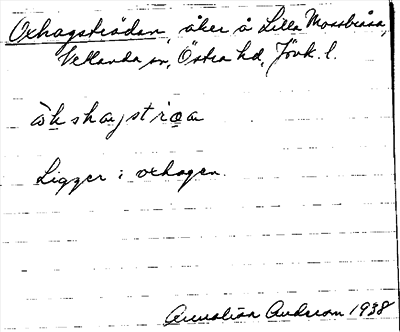 Oxhagsträdan, åker å Lilla Mossbråna,
Vetlanda sn, Östra hd, Jönk. l.
Ligger i oxhagen.
Annalisa Andersson 1938